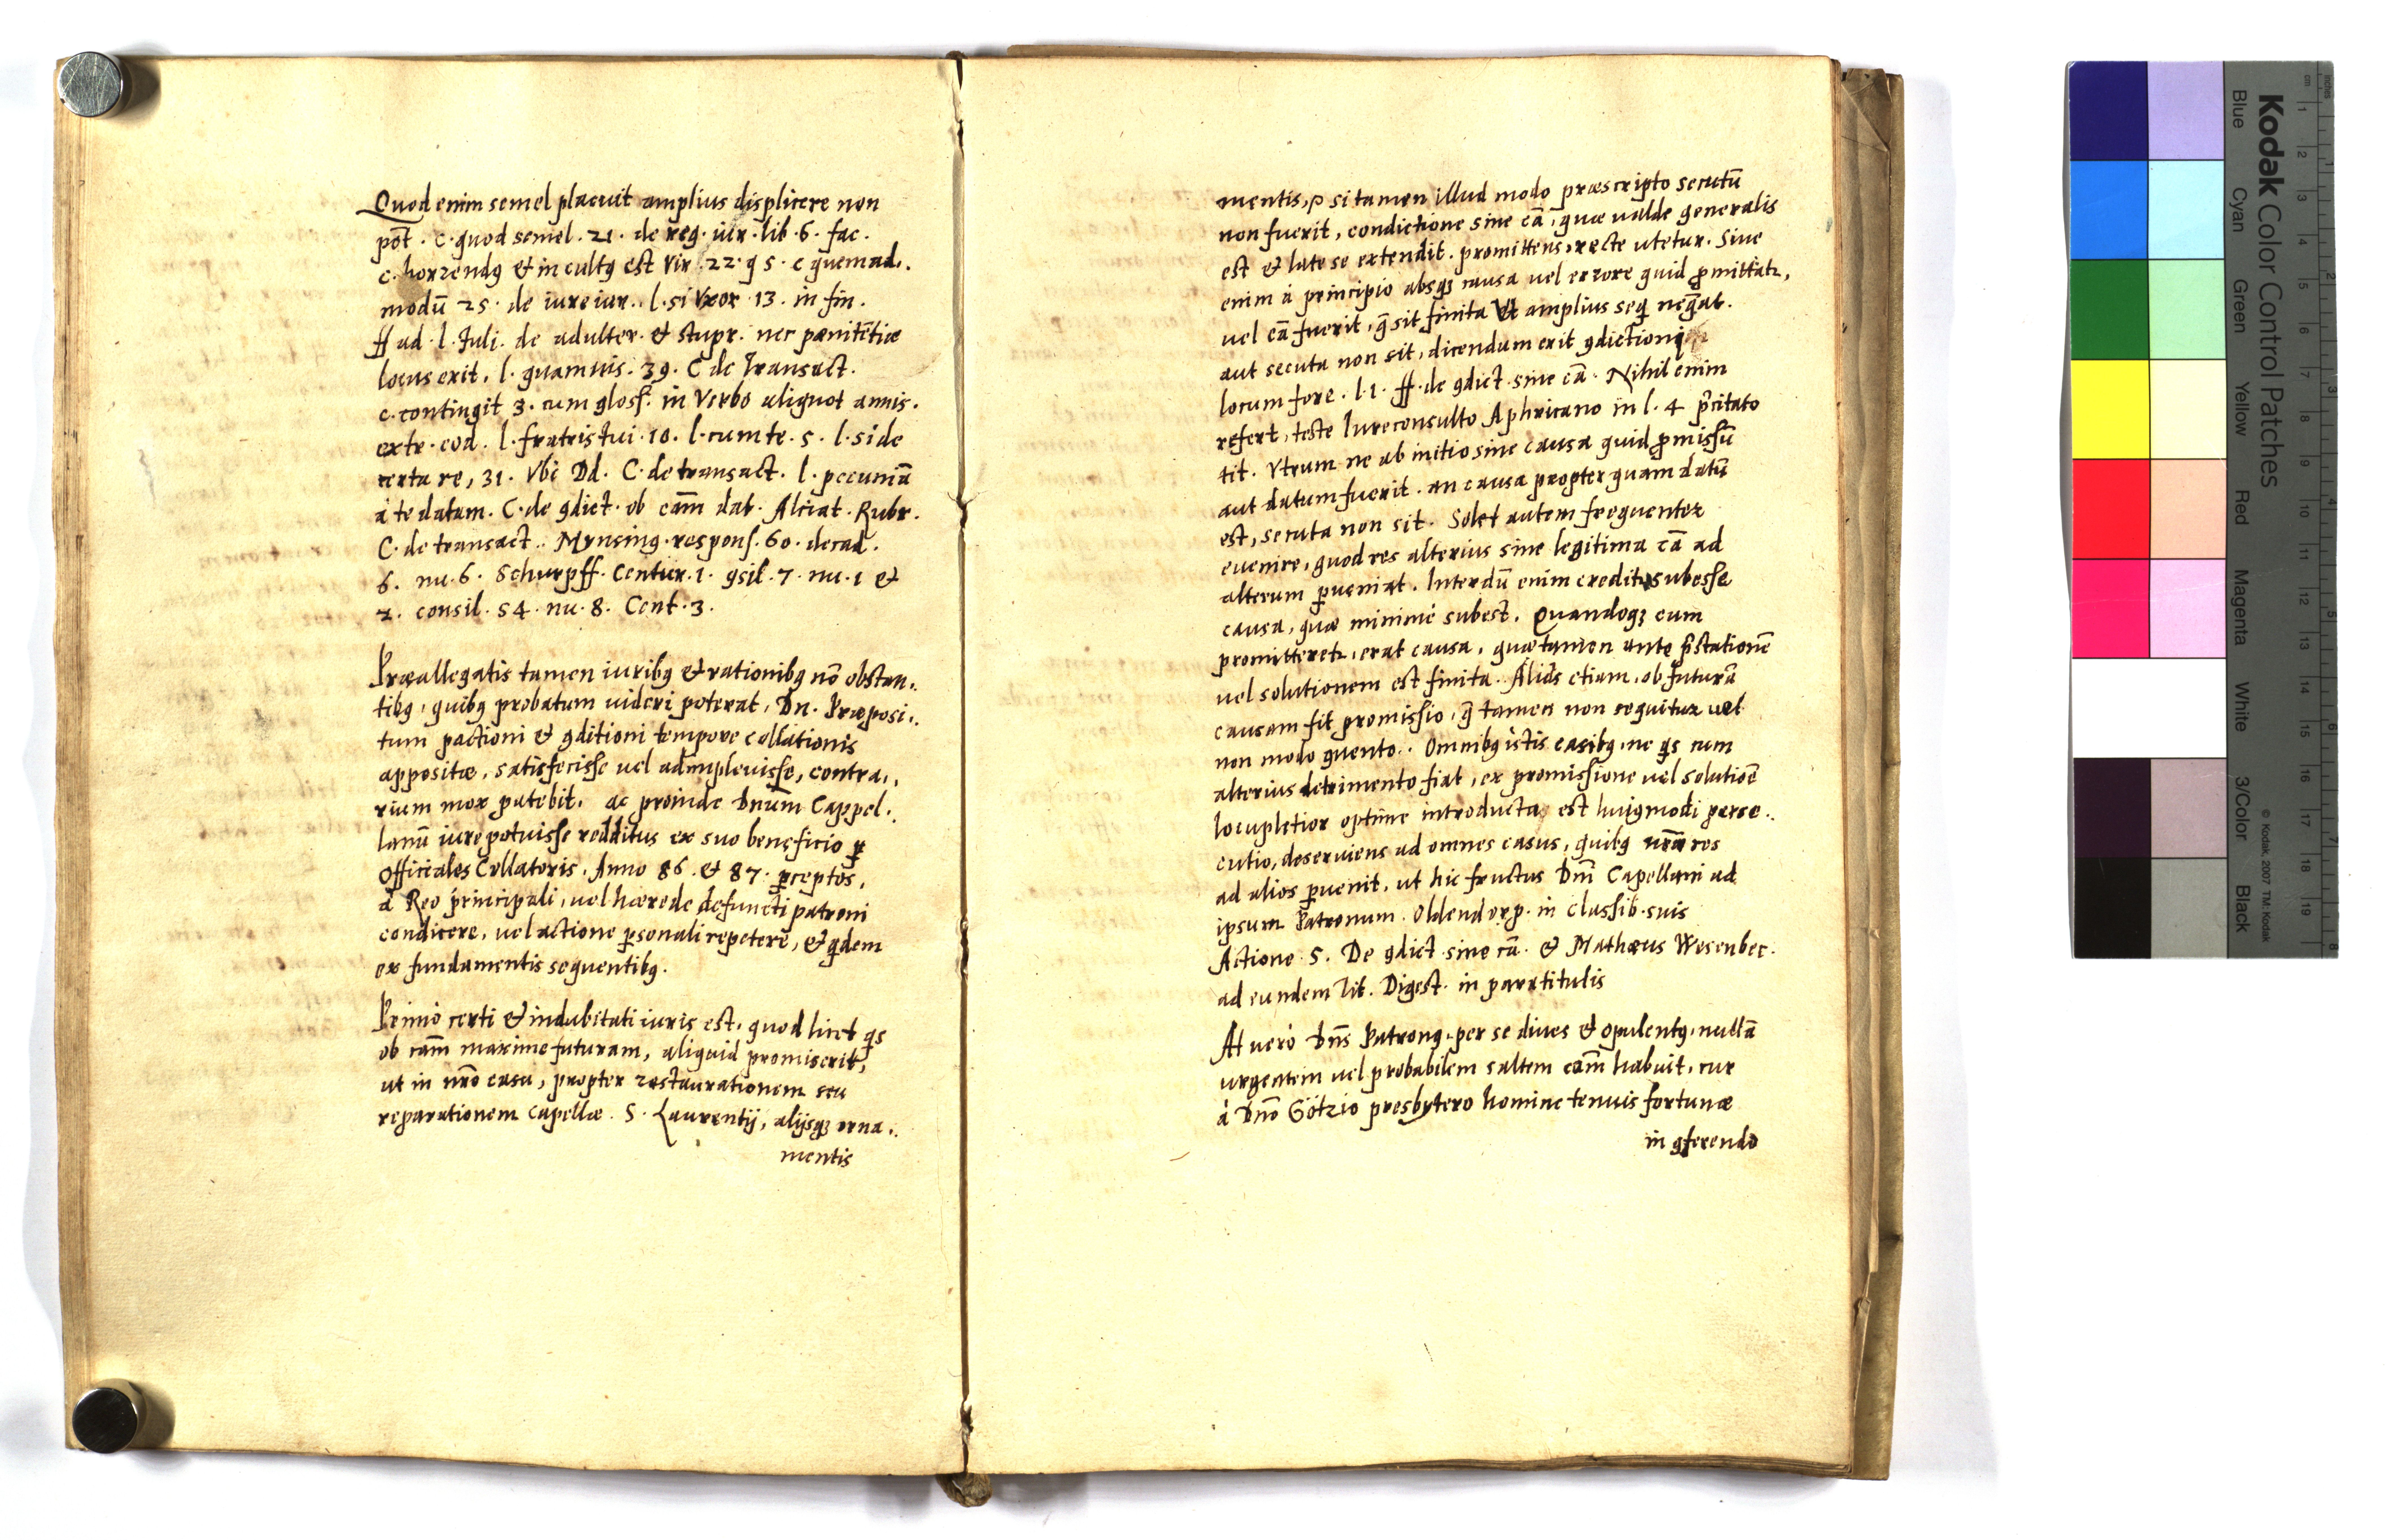 Quod enim semel placuit amplius displicere non
pōt. c. quod semel. 21. de reg. iur. lib. 6. fac.
c. horrendꝯ et in cultꝯ est Vir. 22. q 5. c quemad..
modū 25. de iureiur. l. si Vxor. 13. in fin.
ff ad. l. Juli. de adulter. et stupr. nec pœnitētiæ
locus erit, l. quamuis. 39. C de Transact.
c. contingit 3. cum gloss. in Verbo aliquot annis.
extr. eod. l. fratris tui. 10. l. cum te. 5. l. si de
certa re, 31. Vbi Dd. C. de transact. l. pecuniā
à te datam. C. de ꝯdict. ob cām dat. Alciat. Rubr.
C. de transact.. Mynsing. respons. 60. decad.
6. nu. 6. Schurpff. Centur. 1. ꝯsil. 7. nu. 1 et
2. consil. 54. nu. 8. Cent. 3.
Præallegatis tamen iuribꝯ et rationibꝯ nō obstan..
tibꝯ, quibꝯ probatum uideri poterat, Dn. Præposi..
tum pactioni et ꝯditioni tempore collationis
appositæ, satisfecisse uel adimpleuisse, contra..
rium mox patebit. ac proinde Dnūm Cappel..
lanū iure potuisse redditus ex suo beneficio ꝑ
Officiales Collatoris. Anno 86. et 87. ꝑceptos,
à Reo principali, uel hærede defuncti patroni
condicere, uel actione ꝑsonali repetere, et qdem
ex fundamentis sequentibꝯ.
Primò certi et indubitati iuris est. quod licet qs
ob cām maxime futuram, aliquid promiserit,
ut in nrō casu, propter restaurationem seu
reparationem capellæ. S. Laurentij, alijsqꝫ orna..
mentis
mentis, si tamen illud modo præscripto secutū
non fuerit, condictione sine cā, quæ ualde generalis
est et late se extendit. promittens, recte utetur. Siue
enim à principio absqꝫ causa uel errore quid ꝓmittatr,
uel cā fuerit, q̄ sit finita et amplius seq negat.
aut secuta non sit, dicendum erit ꝯdictioni
locum fore. l. 1. ff. de ꝯdict. sine cā. Nihil enim
refert, teste Iureconsulto Aphricano in l. 4 p̄citato
tit. Vtrum ne ab initio sine causa quid ꝓmissū
aut datum fuerit. an causa propter quam datū
est, secuta non sit. Solet autem frequenter
euenire, quod res alterius sine legitima cā ad
alterum ꝑueniat. Interdū enim creditr subesse
causa, quæ minimè subest. Quandoqꝫ cum
promitteretr, erat causa, quæ tamen ante p̄stationē
uel solutionem est finita. Aliâs etiam, ob futurā
causam fit promissio, q̄ tamen non sequitur uel
non modo ꝯuento.. Omnibꝯ istis casibꝯ, ne qs cum
alterius detrimento fiat, ex promissione uel solutiōe
locupletior optime introducta est huiꝯmodi perse..
cutio, deseruiens ad omnes casus, quibꝯ nrā res
ad alios ꝑuenit, ut hic fructus Dnī Capellani ad
ipsum Patronum. Oldendorp. in classib. suis
Actione 5. De ꝯdict. sine cā. et Mathæus Wesenbec.
ad eundem Tit. Digest. in paratitulis
At uerò Dn̄s Patronꝯ, per se diues et opulentꝯ, nullā
urgentem uel probabilem saltem cām habuit, cur
à Dnō Götzio presbytero homine tenuis fortunæ
in ꝯferendo
Kodak Color Control Patches
Blue Cyan Green Yellow Red Magenta White 3/Color Black
© Kodak, 2007 TM: Kodak
cm 1 2 3 4 5 6 7 8 9 10 11 12 13 14 15 16 17 18 19
inches 1 2 3 4 5 6 7 8